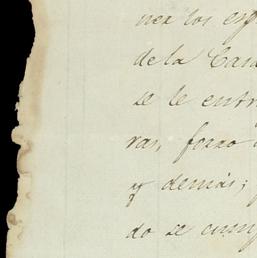 nex los esp
de la Casa
se le entr
ras, forro
y demás;
do se cump